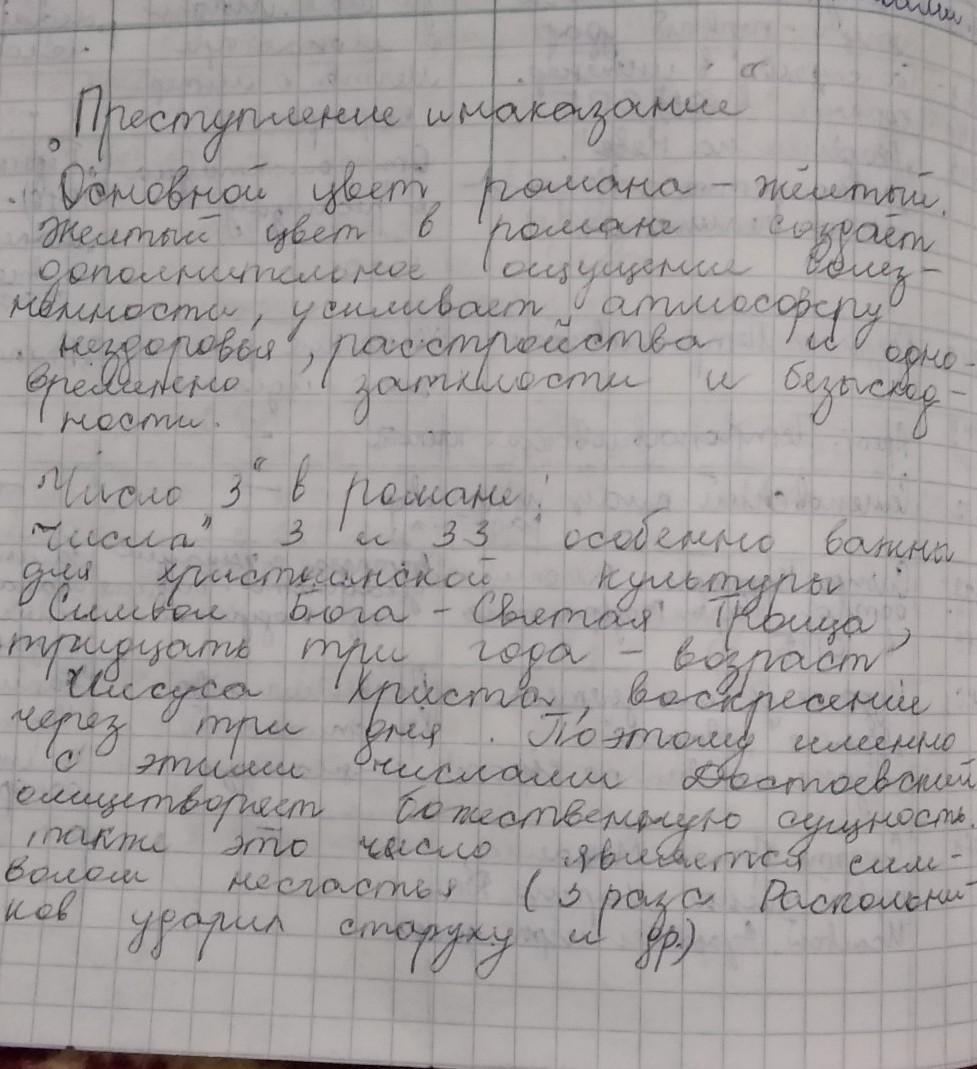 „Преступление и наказание“
Основной цвет романа – жёлтый.
Желтый цвет в романе создаёт
дополнительное ощущение болез-
ненности, усиливает атмосферу
нездоровья, расстройства и одно-
временно затхлости и безысход-
ности.
Число „3“ в романе:
Числа 3 и 33 особенно важны
для христианской культуры
Символ Бога – Святая Троица,
тридцать три года – возраст
Иисуса Христа, воскресение
через три дня. Поэтому именно
с этими числами Достоевский
олицетворяет божественную сущность.
также это число является сим-
волом несчастья (3 раза Раскольни-
ков ударил старуху и др.)